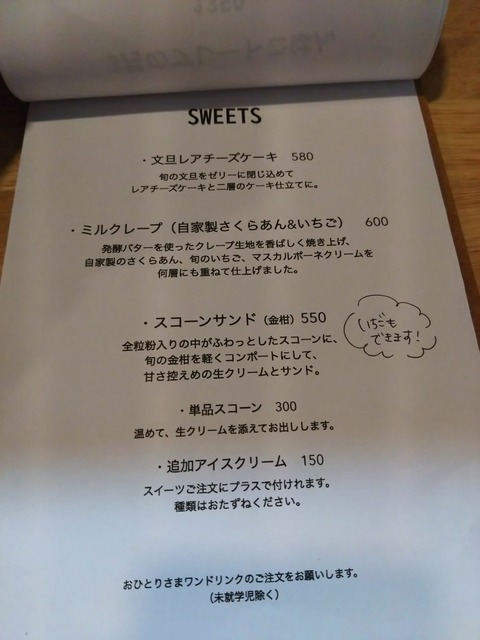 SWEETS
・文旦レアチーズケーキ 580
旬の文旦をゼリーに閉じ込めて
レアチーズケーキと二層のケーキ仕立てに。
・ミルクレープ（自家製さくらあん&いちご） 600
発酵バターを使ったクレープ生地を香ばしく焼き上げ、
自家製のさくらあん、旬のいちご、マスカルポーネクリームを
何層にも重ねて仕上げました。
・スコーンサンド（金柑）550
いちごも
できます！
全粒粉入りの中がふわっとしたスコーンに、
旬の金柑を軽くコンポートにして、
甘さ控えめの生クリームとサンド。
・単品スコーン 300
温めて、生クリームを添えてお出しします。
・追加アイスクリーム 150
スイーツご注文にプラスで付けれます。
種類はおたずねください。
おひとりさまワンドリンクのご注文をお願いします。
（未就学児除く）